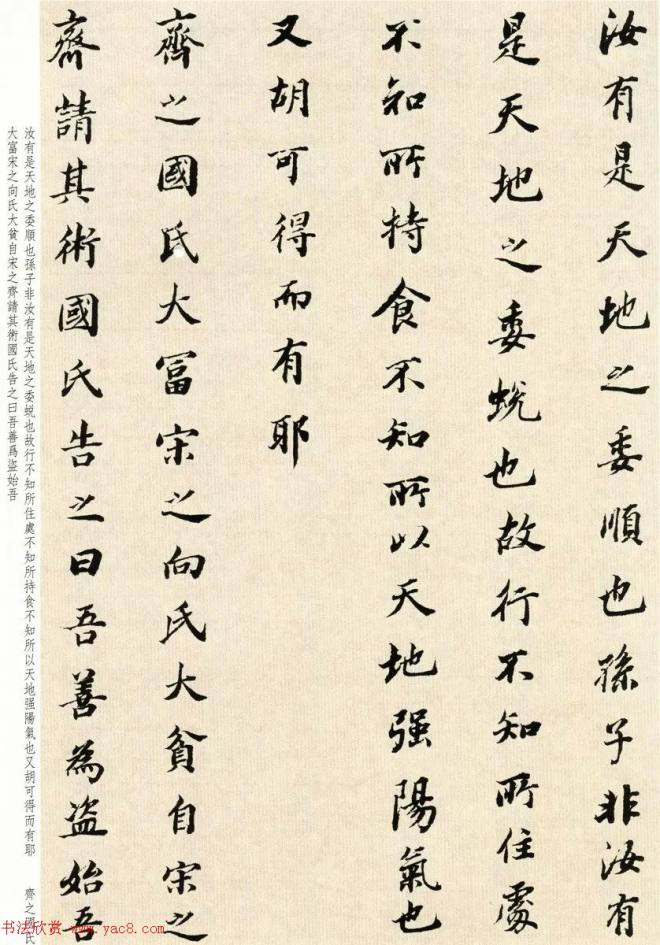 汝有是天地之委順也孫子非汝有
是天地之委蛻也故行不知所住處
不知所持食不知所以天地强陽氣也
又胡可得而有耶
齊之國氏大冨宋之向氏大貧自宋之
齊請其術國氏告之曰吾善為盜始吾
汝有是天地之委順也孫子非汝有是天地之委蛻也故行不知所住處不知所持食不知所以天地强陽氣也又胡可得而有耶 齊之國氏
大富宋之向氏大貧自宋之齊請其術國氏告之曰吾善爲盜始吾
书法欣赏 www.yac8.com